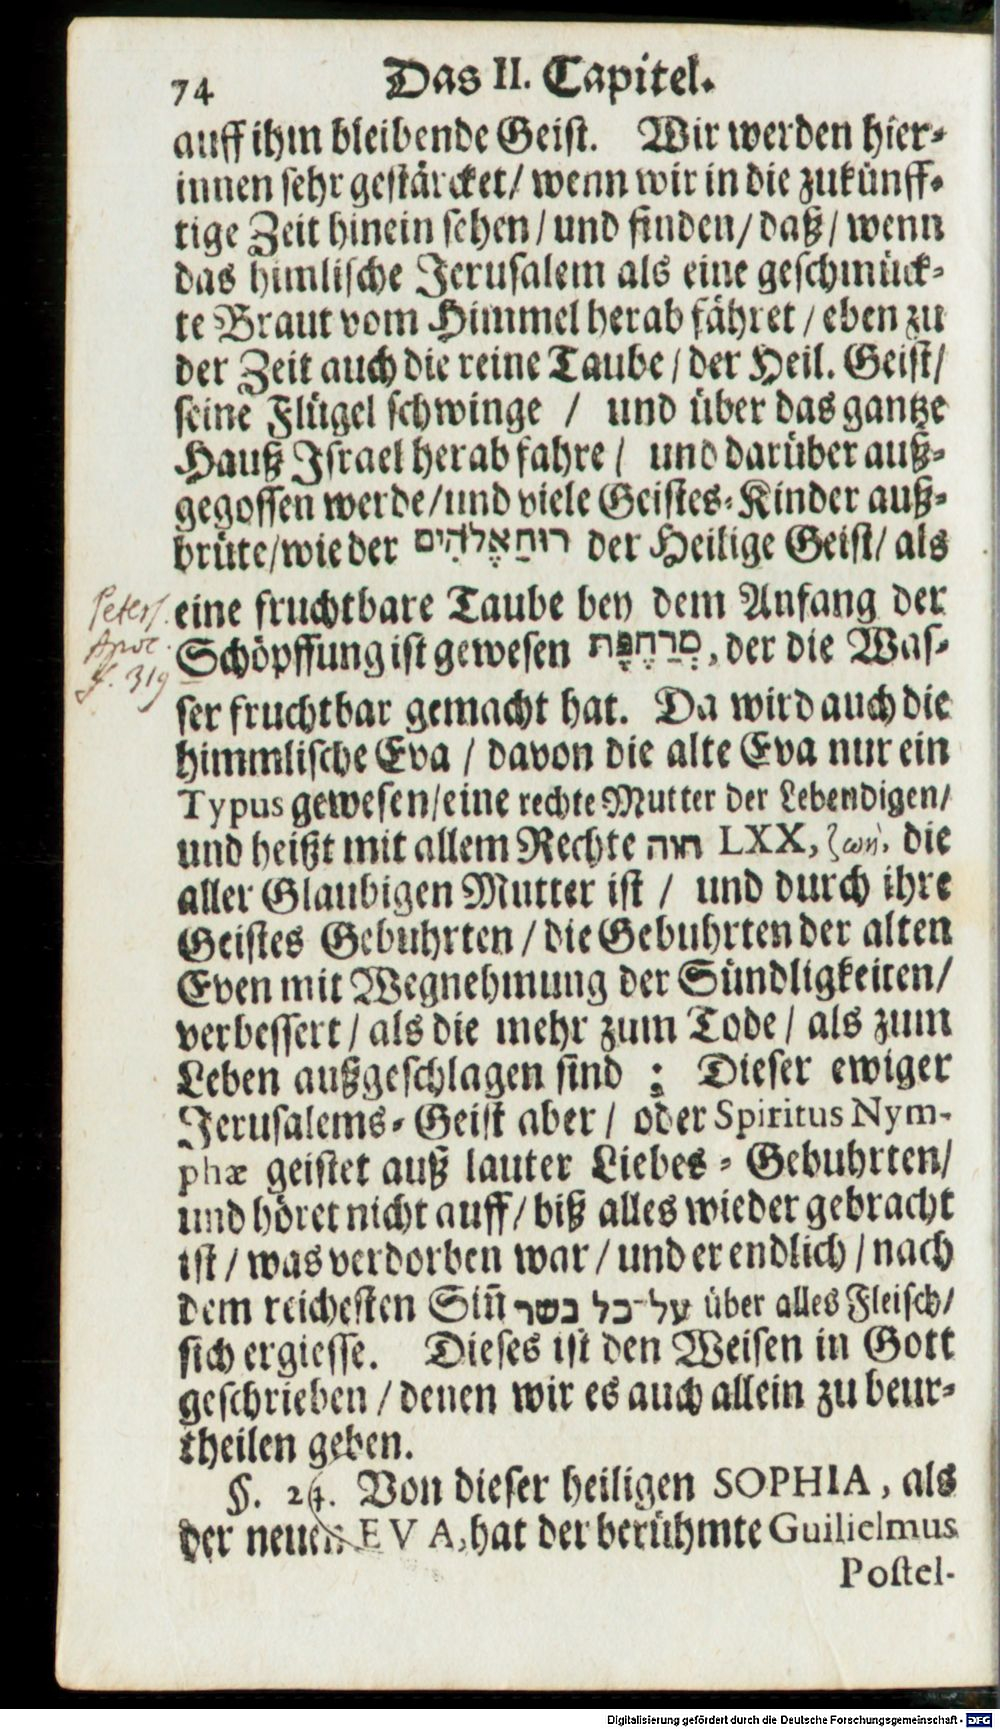 74 Das II. Capitel.
auff ihm bleibende Geist. Wir werden hier-
innen sehr gestärcket/ wenn wir in die zukünff-
tige Zeit hinein sehen/ und finden/ daß/ wenn
das himlische Jerusalem als eine geschmück-
te Braut vom Himmel herab fähret/ eben zu
der Zeit auch die reine Taube/ der Heil. Geist/
seine Flügel schwinge / und über das gantze
Hauß Israel herab fahre/ und darüber auß-
gegossen werde/ und viele Geistes-Kinder auß-
brüte/ wie der רוּחַ אֱלֹהִים der Heilige Geist/ als
eine fruchtbare Taube bey dem Anfang der
Schöpffung ist gewesen מְרַחֶפֶת, der die Was-
ser fruchtbar gemacht hat. Da wird auch die
himmlische Eva / davon die alte Eva nur ein
Typus gewesen/ eine rechte Mutter der Lebendigen/
und heißt mit allem Rechte חוה LXX, ζωὴ, die
aller Glaubigen Mutter ist / und durch ihre
Geistes Gebuhrten / die Gebuhrten der alten
Even mit Wegnehmung der Sündligkeiten/
verbessert/ als die mehr zum Tode/ als zum
Leben außgeschlagen sind : Dieser ewiger
Jerusalems-Geist aber/ oder Spiritus Nym-
phæ geistet auß lauter Liebes-Gebuhrten/
und höret nicht auff/ biß alles wieder gebracht
ist/ was verdorben war/ und er endlich/ nach
dem reichesten Siñ על־כל בשר über alles Fleisch/
sich ergiesse. Dieses ist den Weisen in Gott
geschrieben/ denen wir es auch allein zu beur-
theilen geben.
§. 24. Von dieser heiligen SOPHIA, als
der neuen EVA, hat der berühmte Guilielmus
Postel-
Peters.
f. 319
Digitalisierung gefördert durch die Deutsche Forschungsgemeinschaft - DFG